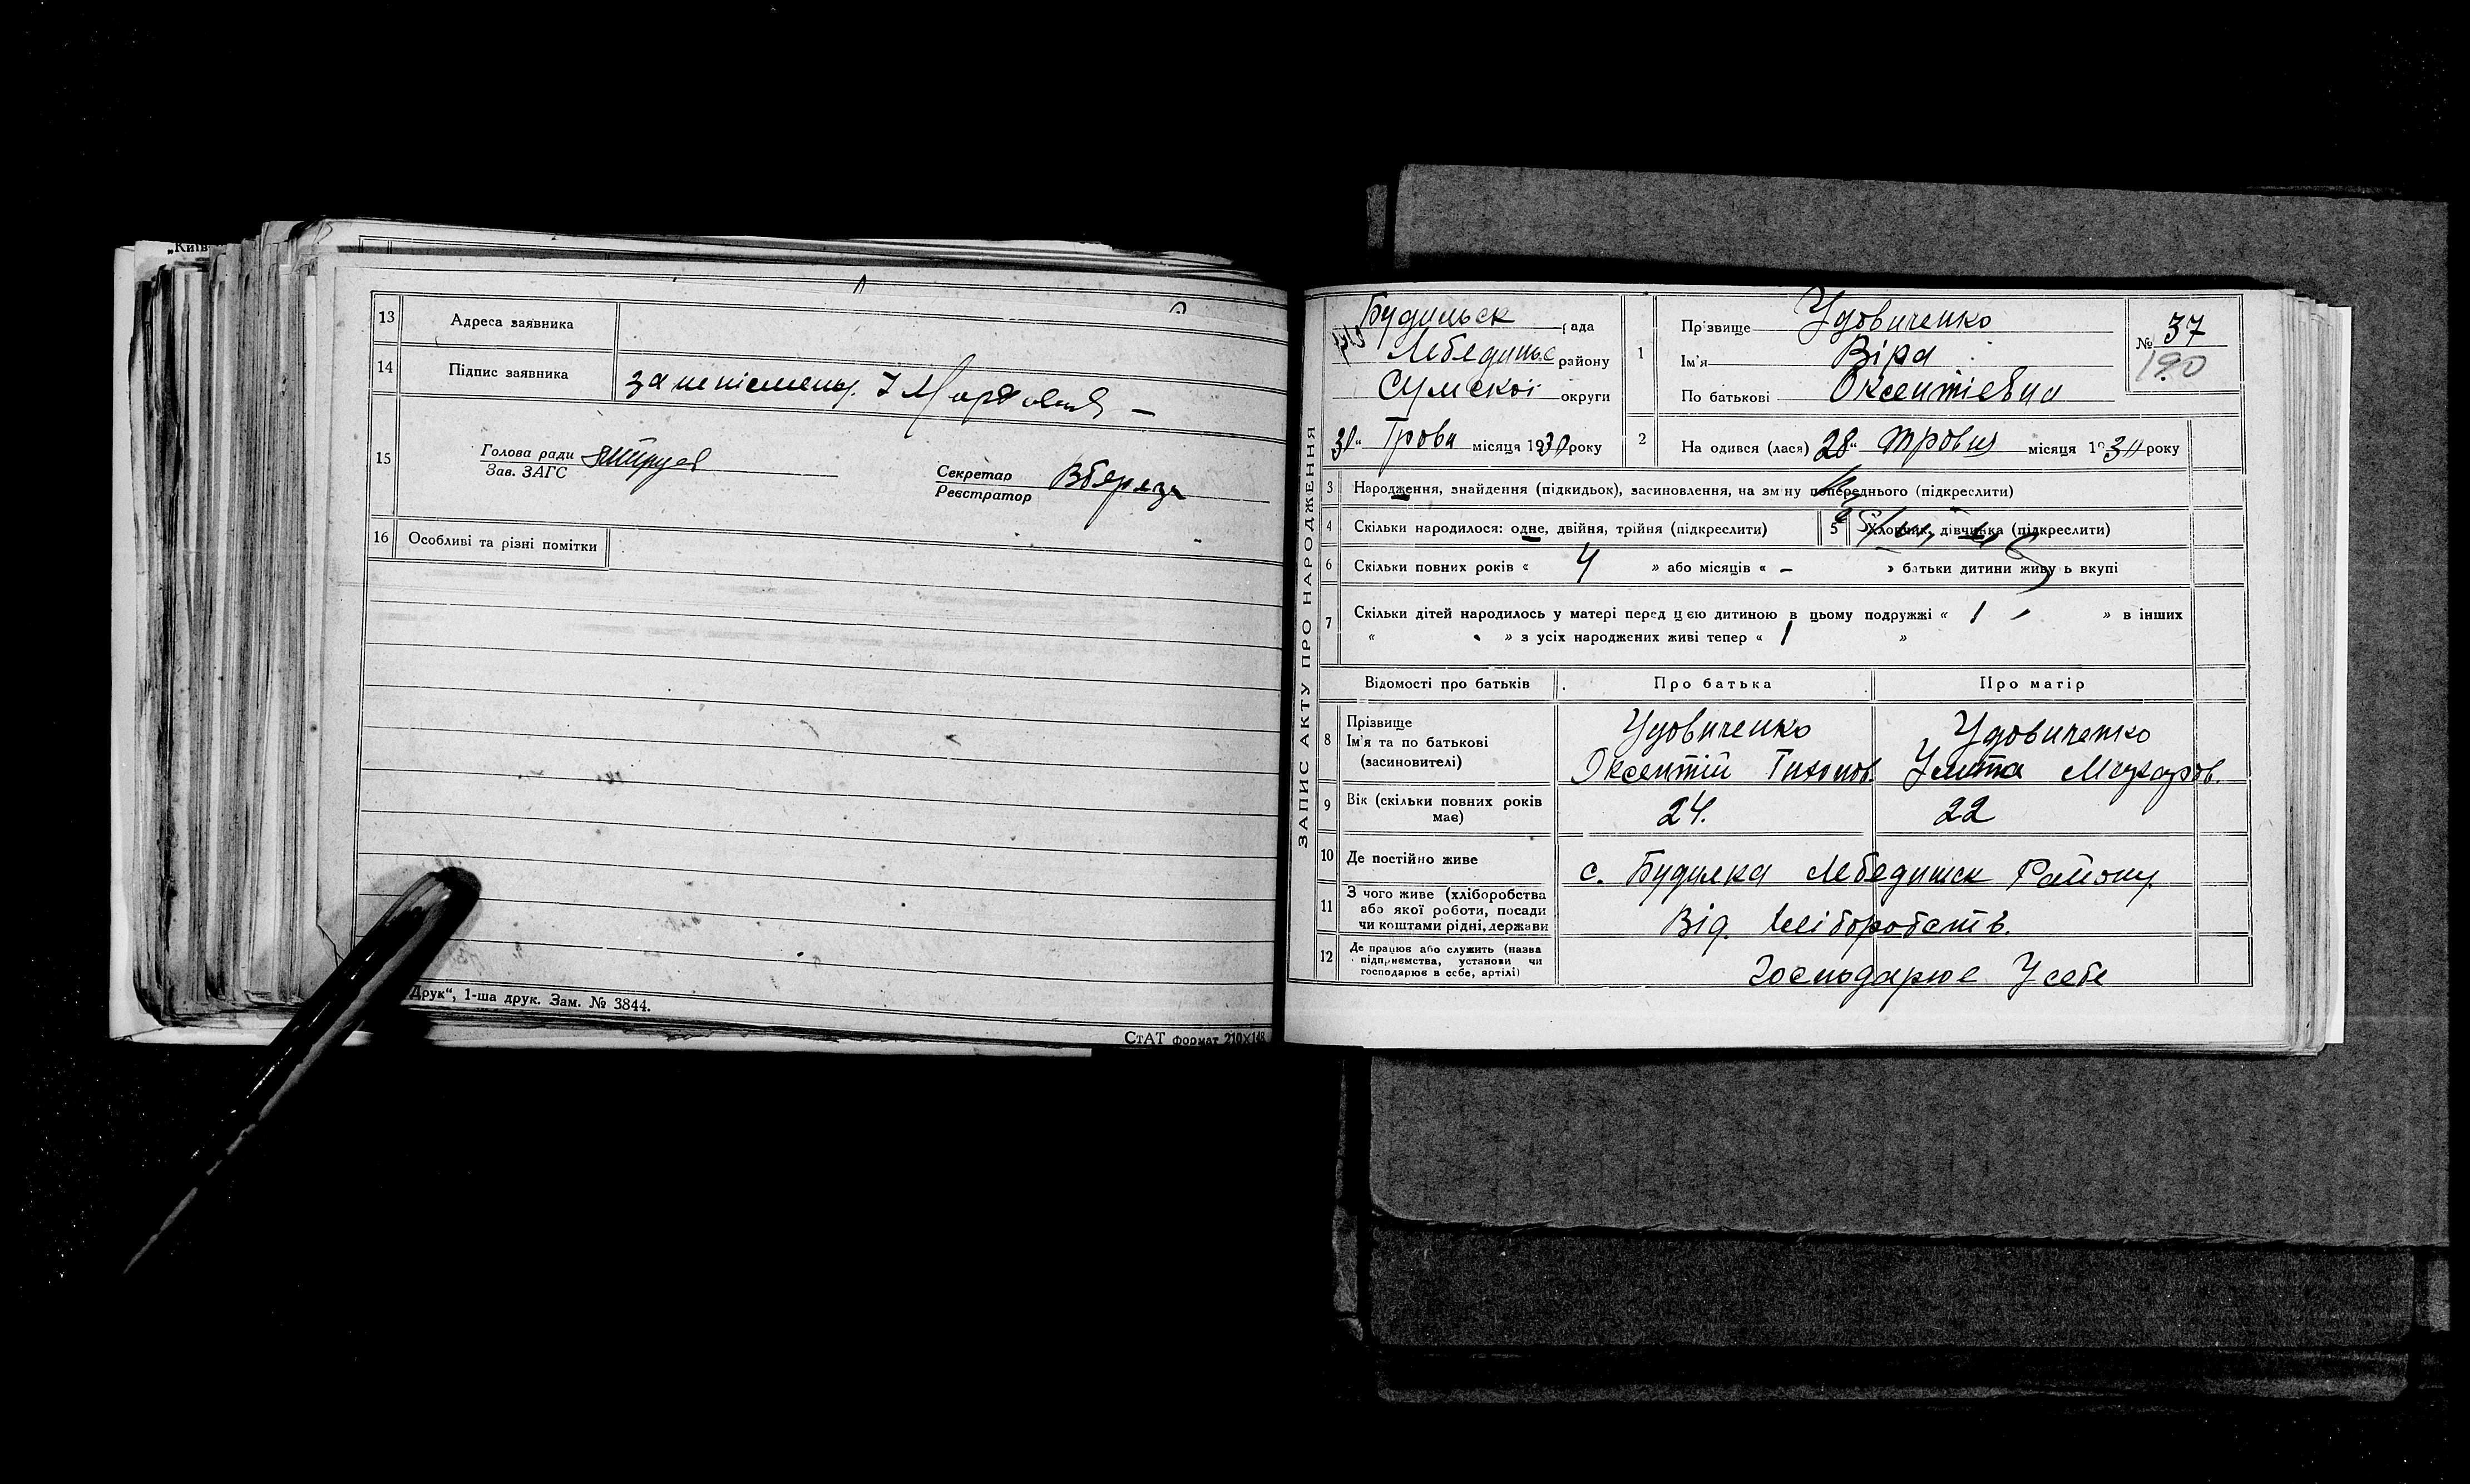 „Київ
13 Адреса заявника
14 Підпис заявника за неписьмен.
15 Голова ради
Зав. ЗАГС
Секретар
Реєстратор
16 Особливі та різні помітки
Друк“, 1-ша друк. Зам. № 3844.
СтАТ формат 210×148
ЗАПИС АКТУ ПРО НАРОДЖЕННЯ
Будильск рада
Лебединьс району
Сумскоі округи
30 " Тровн місяця 1930 року
1 Прізвище Удовиченко
Ім'я Віра
По батькові Оксентіевна
№ 37
190
2 Народився (лася) 28 " тровня місяця 1930 року
3 Народження, знайдення (підкидьок), засиновлення, на зміну попереднього (підкреслити)
4 Скільки народилося: одне, двійня, трійня (підкреслити)
5 Хлопчик, дівчинка (підкреслити)
6 Скільки повних років « 4 » або місяців « – » батьки дитини живуть вкупі
7 Скільки дітей народилось у матері перед цією дитиною в цьому подружжі « 1 » в інших
« » з усіх народжених живі тепер « 1 »
Відомості про батьків Про батька Про матір
8 Прізвище
Ім'я та по батькові
(засиновителі)
Удовиченко
Оксентій Тихонов.
Удовиченко
Улита Макаров.
9 Вік (скільки повних років має) 24. 22
10 Де постійно живе с. Будилка Лебединск Району
11 З чого живе (хліборобства
або якої роботи, посади
чи коштами рідні, держави
Від хліборобств.
12 Де працює або служить (назва
підприємства, установи чи
господарює в себе, артілі)
Господарює У себе